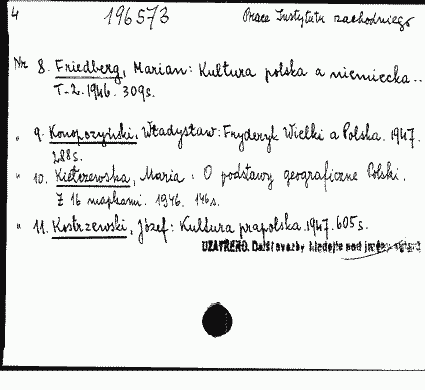 4 196573 Prace Instytutu zachodniego
Nr 8. Friedberg, Marian: Kultura polska a niemiecka...
T-2. 1946. 309s.
" 9. Konopczyński, Władysław: Fryderyk Wielki a Polska. 1947.
288s.
" 10. Kiełczewska, Maria: O podstawy geograficzne Polski.
Z 16 mapkami. 1946. 146s.
" 11. Kostrzewski, Józef: Kultura prapolska. 1947. 605s.
UZAVŘENO. Další svazky hledejte pod